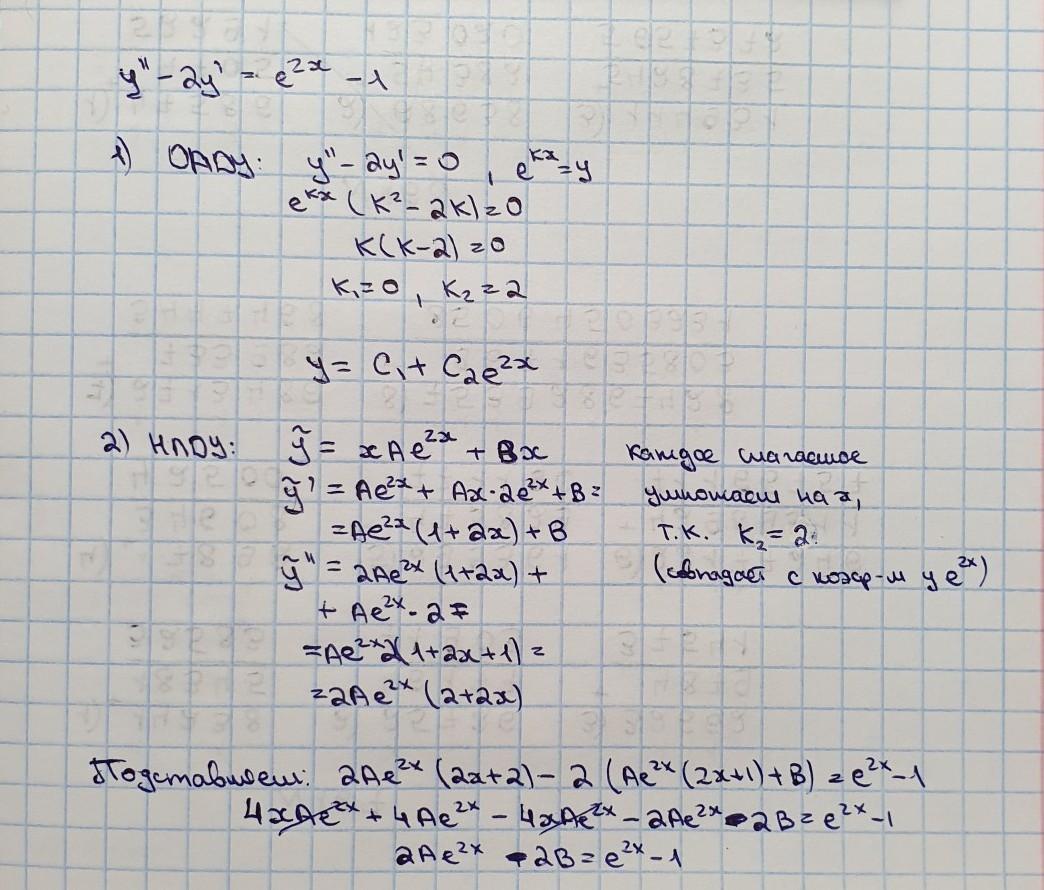 y'' - 2y' = e^{2x} - 1
1) ОЛДУ: y'' - 2y' = 0 , e^{kx} = y
e^{kx} (k² - 2k) = 0
k(k-2) = 0
k₁ = 0 , k₂ = 2
y = C₁ + C₂e^{2x}
2) НЛДУ: ỹ = xAe^{2x} + Bx каждое слагаемое
ỹ' = Ae^{2x} + Ax·2e^{2x} + B = умножаем на x,
= Ae^{2x} (1+2x) + B т.к. k₂ = 2.
ỹ'' = 2Ae^{2x} (1+2x) + (совпадает с коэф-м у e^{2x})
+ Ae^{2x} · 2 =
= Ae^{2x} 2(1+2x+1) =
= 2Ae^{2x} (2+2x)
Подставляем: 2Ae^{2x} (2x+2) - 2 (Ae^{2x} (2x+1) + B) = e^{2x} - 1
4xAe^{2x} + 4Ae^{2x} - 4xAe^{2x} - 2Ae^{2x} - 2B = e^{2x} - 1
2Ae^{2x} - 2B = e^{2x} - 1